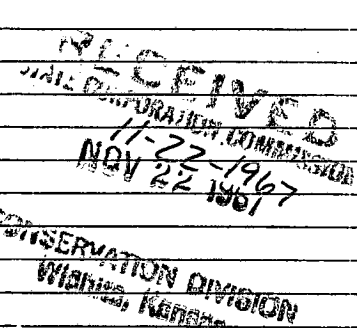 RECEIVED
STATE CORPORATION COMMISSION
11-22-1967
NOV 22 1967
CONSERVATION DIVISION
Wichita, Kansas